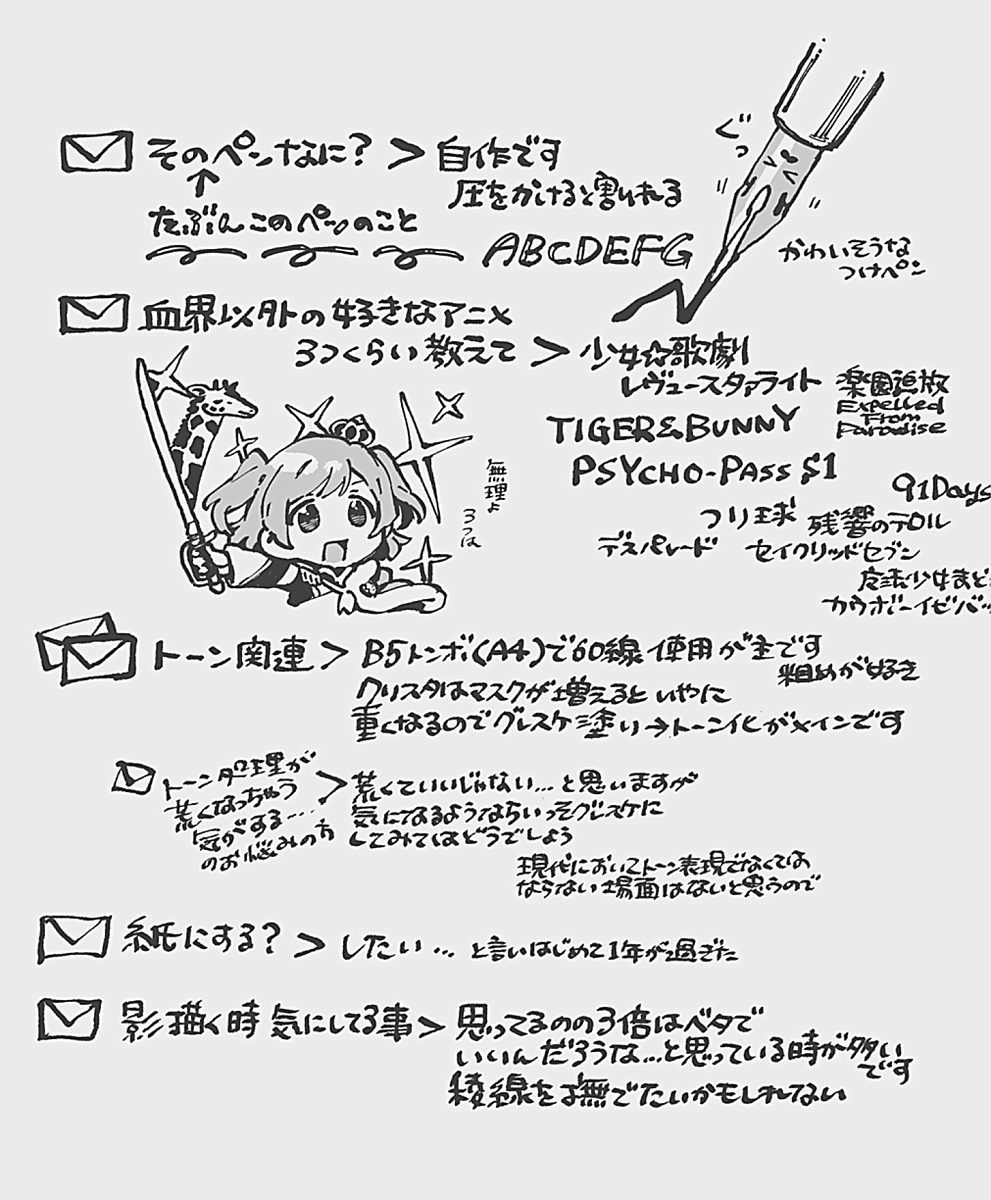 そのペンなに? > 自作です
圧をかけると割れる
↑
たぶんこのペンのこと
ABCDEFG
ぐっ
かわいそうな
つけペン
血界以外の好きなアニメ
3つくらい教えて > 少女☆歌劇
レヴュースタァライト
楽園追放
Expelled
From
Paradise
TIGER&BUNNY
PSYCHO-PASS S1
91Days
つり球
残響のテロル
デスパレード
セイクリッドセブン
魔法少女まど
カウボーイビバッ
無理よ
3つは
トーン関連 > B5トンボ(A4)で60線使用が主です
粗めが好き
クリスタはマスクが増えるといやに
重くなるのでグレスケ塗り→トーン化がメインです
トーン処理が
荒くなっちゃう
気がする…
のお悩みの方
> 荒くていいじゃない…と思いますが
気になるようならいっそグレスケに
してみてはどうでしょう
現代においてトーン表現でなくては
ならない場面はないと思うので
紙にする? > したい… と言いはじめて1年が過ぎた
影描く時気にしてる事 > 思ってるのの3倍はベタで
いいんだろうな…と思っている時が多い
です
稜線を撫でたいかもしれない